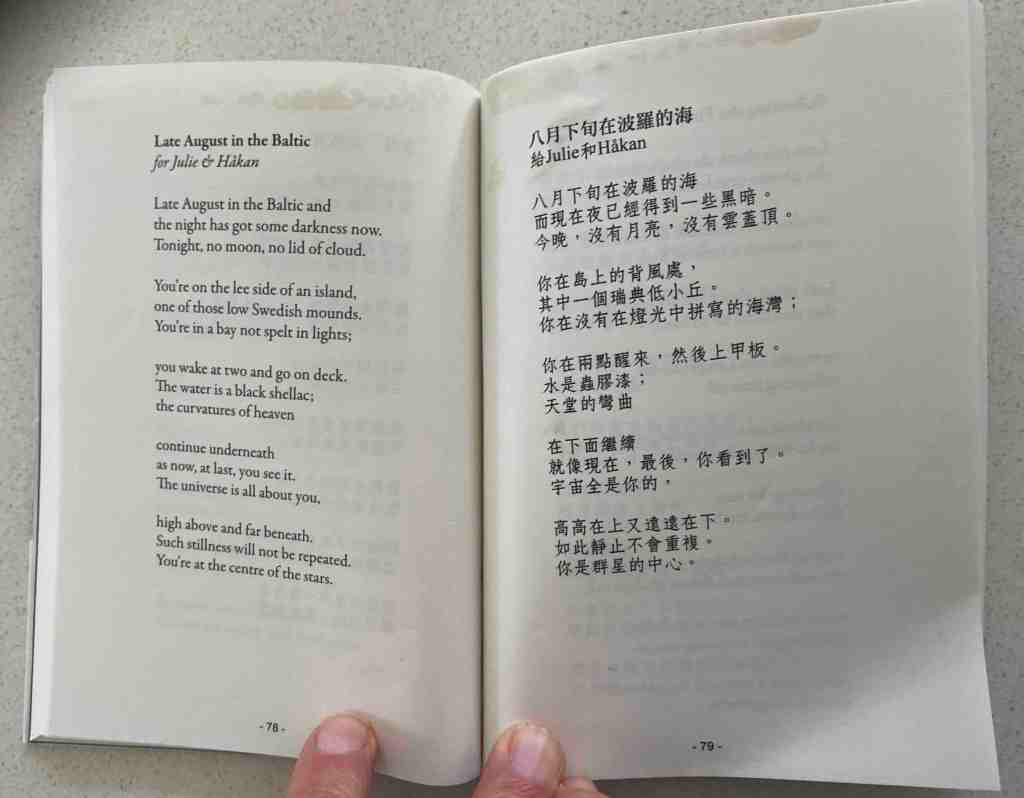 Late August in the Baltic
for Julie & Håkan
Late August in the Baltic and
the night has got some darkness now.
Tonight, no moon, no lid of cloud.
You're on the lee side of an island,
one of those low Swedish mounds.
You're in a bay not spelt in lights;
you wake at two and go on deck.
The water is a black shellac;
the curvatures of heaven
continue underneath
as now, at last, you see it.
The universe is all about you,
high above and far beneath.
Such stillness will not be repeated.
You're at the centre of the stars.
- 78 -
八月下旬在波羅的海
給Julie和Håkan
八月下旬在波羅的海
而現在夜已經得到一些黑暗。
今晚，沒有月亮，沒有雲蓋頂。
你在島上的背風處，
其中一個瑞典低小丘。
你在沒有在燈光中拼寫的海灣；
你在兩點醒來，然後上甲板。
水是蟲膠漆；
天堂的彎曲
在下面繼續
就像現在，最後，你看到了。
宇宙全是你的，
高高在上又遠遠在下。
如此靜止不會重複。
你是群星的中心。
- 79 -